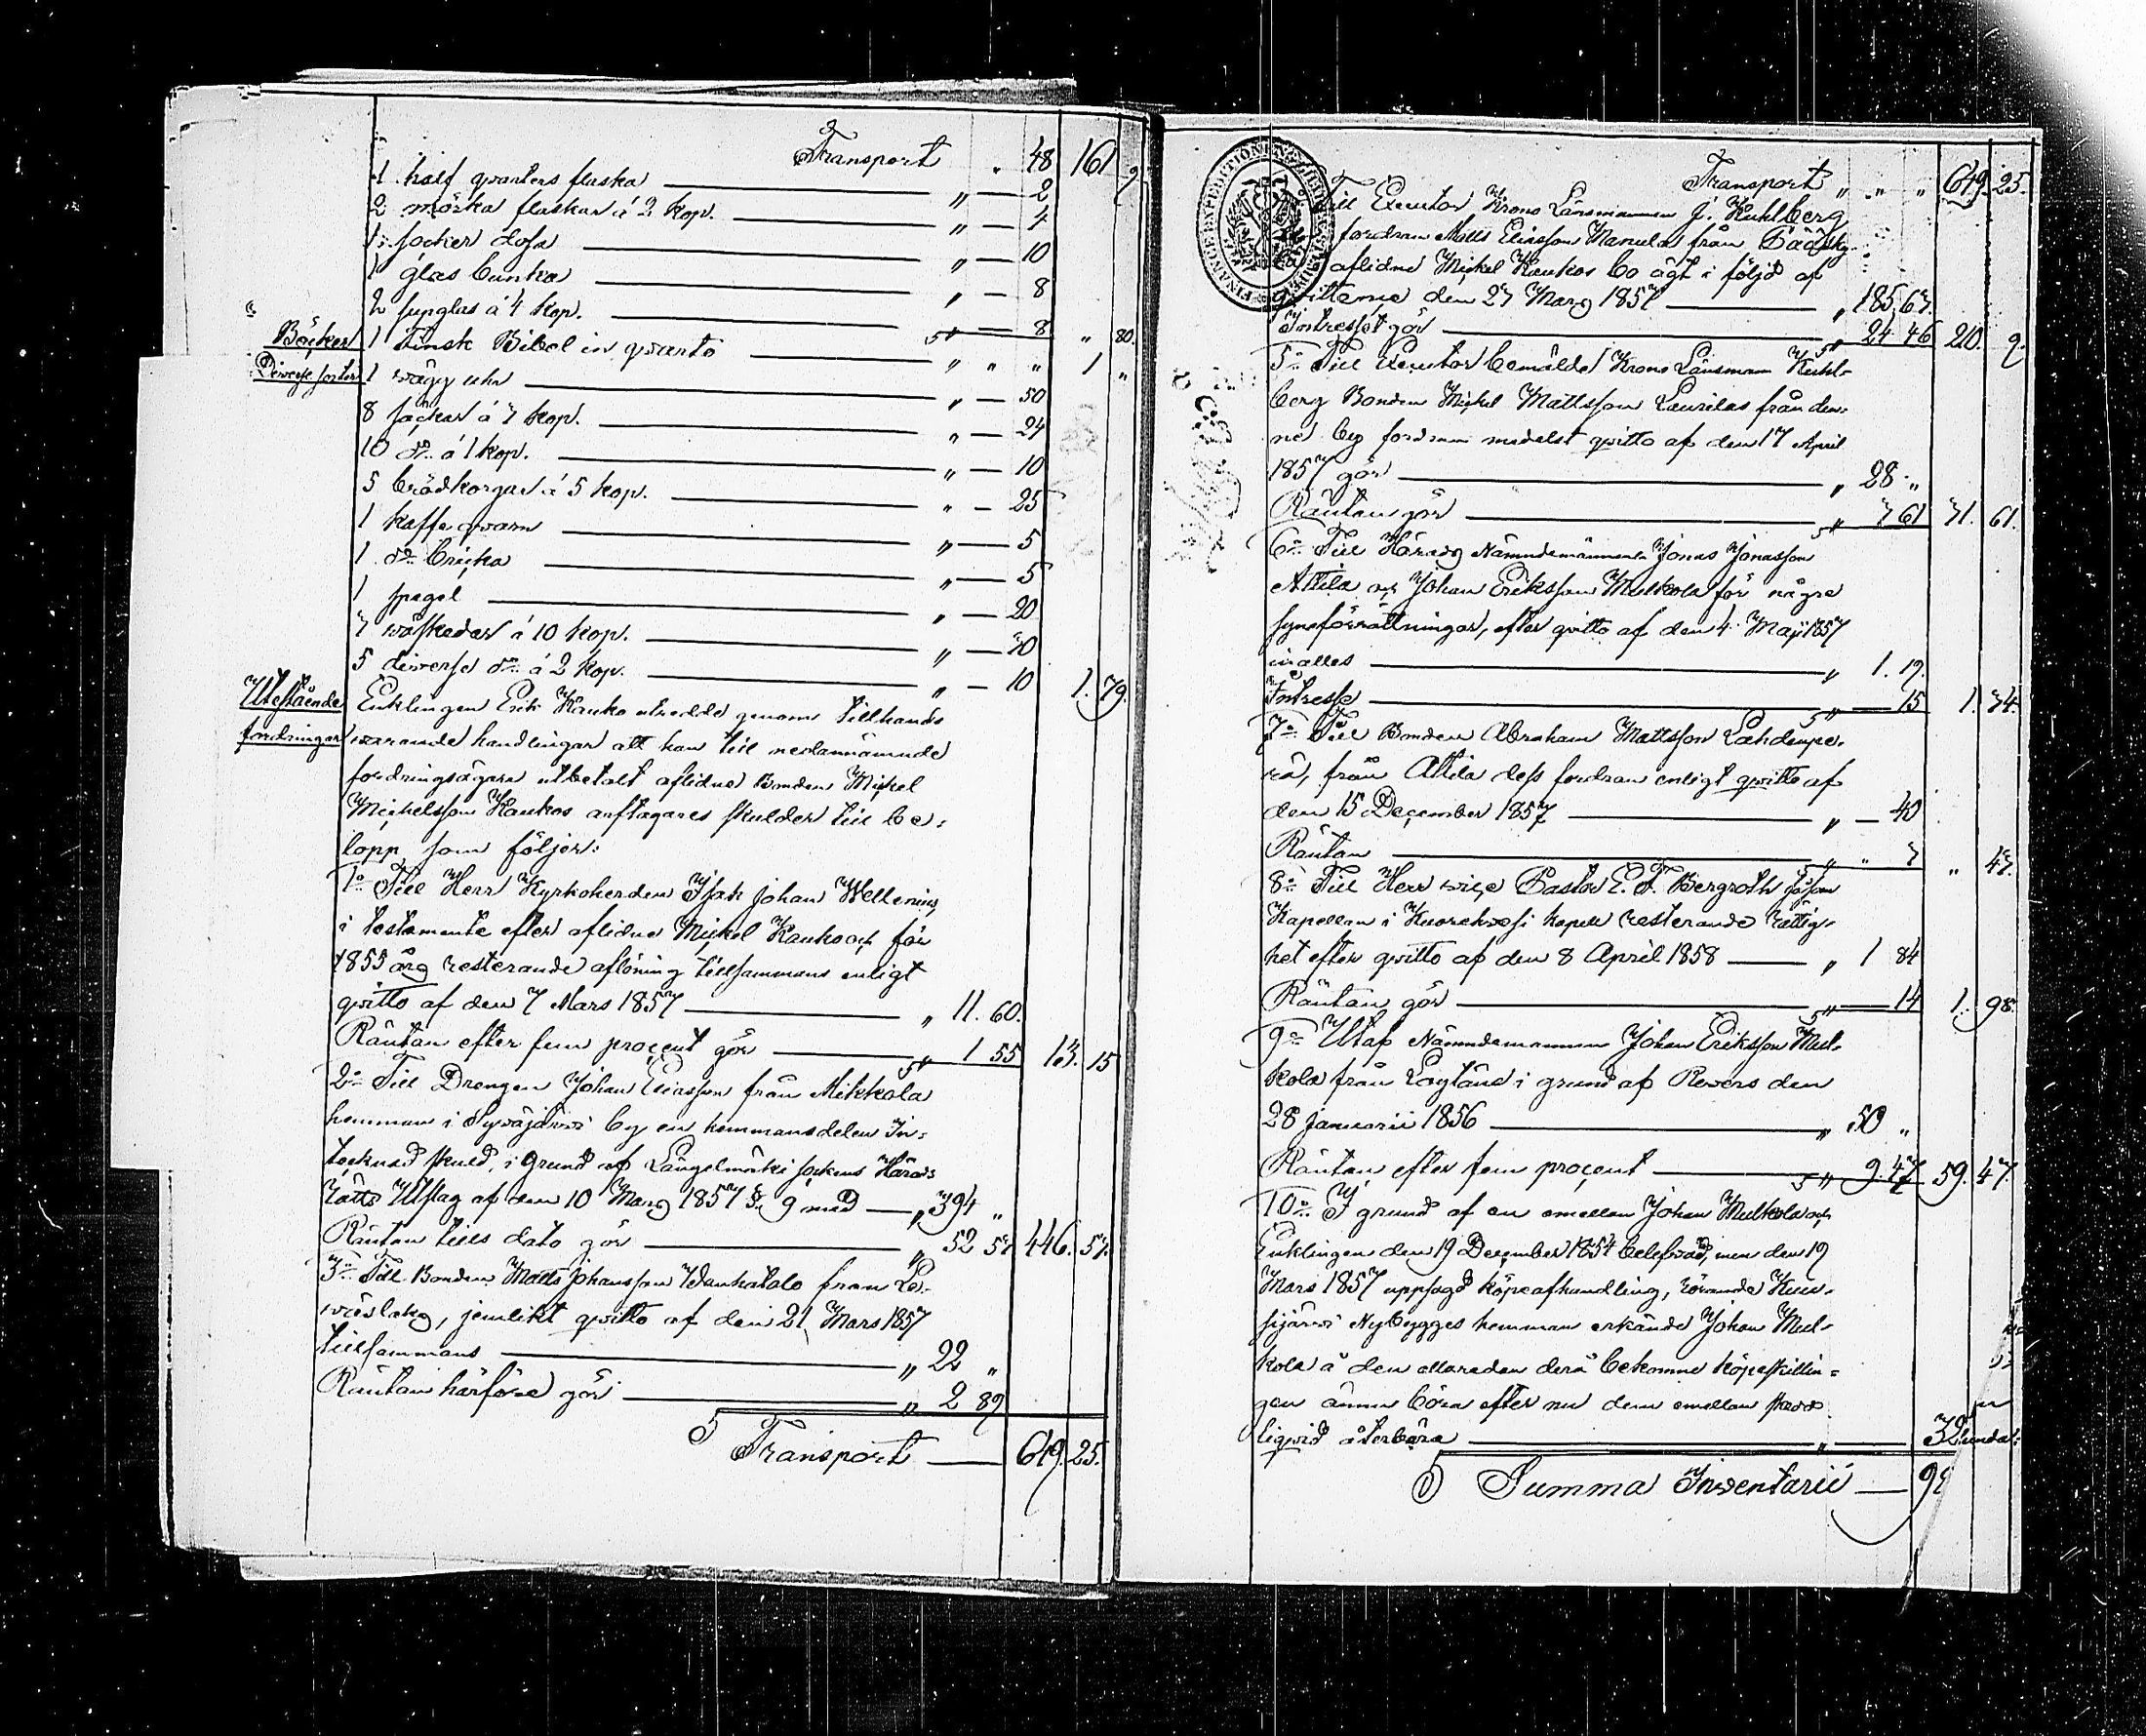 Transport „ 48 161 9
1 half qvarters flaska „ — 2
2 mörka flaskor á 2 kop. „ — 4
1 socker dosa „ — 10
1 glas bunka „ — 8
2 supglas á 4 kop. „ — 8 „ 80.
Böcker 1 Finsk Bibel in qvarto „ „ „ 1 „
Diverse saker 1 vägg uhr „ — 50
8 säckar á 3 kop. „ — 24
10 d:o á 1 kop. „ — 10
5 brödkorgar á 5 kop. „ — 25
1 kaffe qvarn „ — 5
1 d:o bricka „ — 5
1 spegel „ — 20
3 väfskedar á 10 kop. „ — 30
5 diverse d:o á 2 kop. „ — 10 1. 79.
Utestående Enklingen Erik Kauko utredde genom tillhanda
fordringar varande handlingar att han till nedannämnde
fordringsägare utbetalt aflidne Bonden Mickel
Mickelsson Kaukos arftagares skulder till be-
lopp som följer:
1:o Till Herr Kyrkoherden Isak Johan Wellenius
i testamente efter aflidne Mickel Kauko och för
1855 års resterande aflöning tillsammans enligt
qvitto af den 7 Mars 1857 „ 11. 60.
Räntan efter fem procent gör „ 1 55 13. 15
2:o Till Drengen Johan Eliasson från Mikkola
hemman i by en hemmansdelen in-
tecknad skuld, i grund af Längelmäki sockens Härads
Rätts Utslag af den 10 Mars 1857 § 9 med „ 394 „
Räntan tills dato gör „ 52 57 446. 57.
3:o Till Bonden Matts Johansson från Le-
väslaks, jemlikt qvitto af den 21 Mars 1857
tillsammans „ 22 „
Räntan härföre gör „ 2 89
Transport — 649. 25.
Transport „ „ „ 649. 25.
Till Executor Krono Länsmannen J. Kuhlberg
fordran Matts Eliasson Manulas från
aflidne Mickel Kaukos bo ägt i följd af
qvittence den 27 Mars 1857 „ 185. 63.
Intresset gör „ 24 46 210. 9.
5:o Till Executor bemälde Krono Länsman Kuhl-
berg Bonden Mickel Mattsson Laurilas från den-
ne by fordran medelst qvitto af den 17 April
1857 gör „ 28 „
Räntan gör „ 3 61 31. 61.
6:o Till Härads Nämndemännerne Jonas Jonasson
Attila och Johan Eriksson Mulkola för några
syneförrättningar, efter qvitto af den 4 Maji 1857
in alles „ 1. 19.
Intresse „ — 15 1. 34.
7:o Till Bonden Abraham Mattsson Lahdenpe-
rä, från Attila dess fordran enligt qvitto af
den 15 December 1857 „ — 40
Räntan „ „ 7 „ 47.
8:o Till Herr vice Pastor E. F. Bergroth såsom
Kapellan i Kuorehvesi kapell resterande rättig-
het efter qvitto af den 8 April 1858 „ 1 84
Räntan gör „ — 14 1. 98.
9:o Utaf Nämndemannen Johan Eriksson Mul-
kola från i grund af Revers den
28 Januarii 1856 „ 50 „
Räntan efter fem procent „ 9. 47 59. 47.
10:o I grund af en emellan Johan Mulkola och
Enklingen den 19 December 1854 men den 19
Mars 1857 uppsagd köpeafhandling, rörande Kuu-
sijärvi Nybygges hemman erkände Johan Mul-
kola å den derå bekomne köpeskillin-
gen ännu böra efter nu dem emellan skedd
liqvid återbära „ — 32
Summa Inventarii — 9